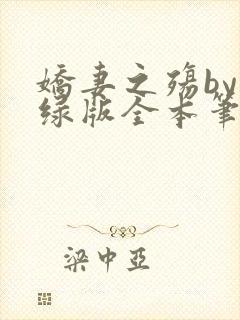 嬌妻之殤by
绿版全本筆
梁中亞